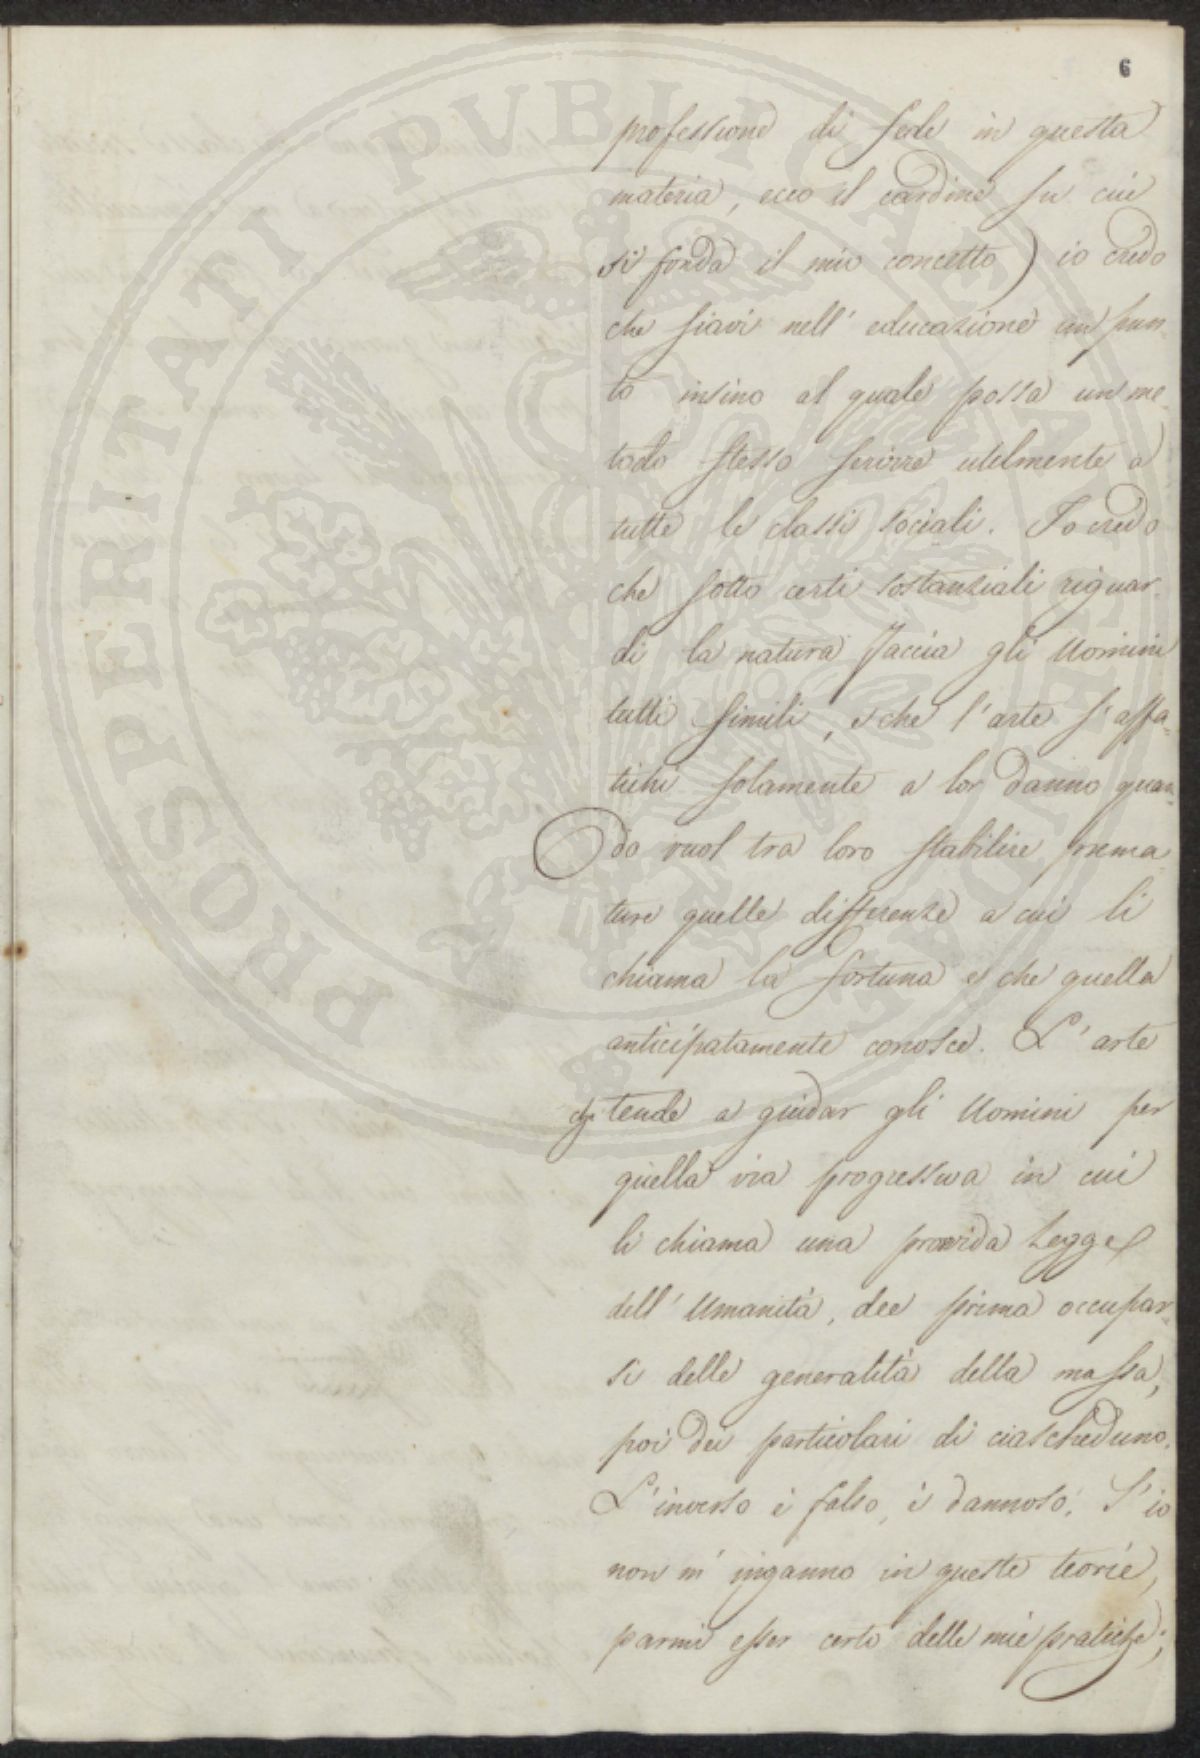 6
professione di fede in questa
materia, ecco il cardine su cui
si fonda il mio concetto) io credo
che siavi nell' educazione un pun-
to insino al quale possa un me-
todo stesso servire utilmente a
tutte le classi sociali. Io credo
che sotto certi sostanziali riguar-
di la natura faccia gli Uomini
tutti simili, e che l'arte s'affa-
tichi solamente a lor danno quan-
do vuol tra loro stabilire prema-
ture quelle differenze a cui li
chiama la fortuna e che quella
anticipatamente conosce. L'arte
che tende a guidar gli Uomini per
quella via progressiva in cui
li chiama una provvida Legge
dell' Umanità, dee prima occupar-
si delle generalità della massa,
poi dei particolari di ciascheduno.
L'inverso è falso, è dannoso. S'io
non m' inganno in queste teorie,
parmi esser certo delle mie pratiche;
PROSPERITATI PVBLICAE AVGENDAE